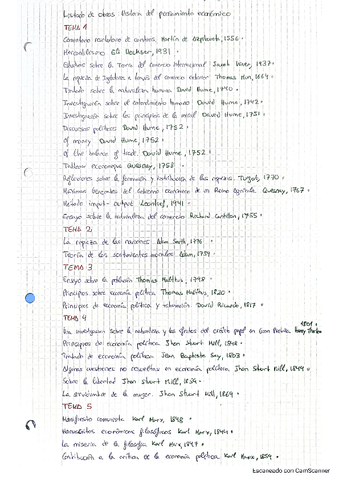 Listado de obras Historia del pensamiento económico
TEMA 1
Comentario resolutorio de cambios, Martín de Azpilcueta, 1556.
Mercantilismo Eli Heckscher, 1931.
Estudios sobre la Teoría del comercio internacional Jacob Viner, 1937.
La riqueza de Inglaterra a través del comercio exterior Thomas Mun, 1664
Tratado sobre la naturaleza humana David Hume, 1740.
Investigación sobre el entendimiento humano David Hume, 1742.
Investigación sobre los principios de la moral David Hume, 1751.
Discursos políticos David Hume, 1752
Of money David Hume, 1752.
Of the balance of trade. David Hume, 1752
Tableau economique Quesnay, 1758
Reflexiones sobre la formación y distribución de las riquezas. Turgot, 1770
Máximas generales del Gobierno económico de un Reino Agrícola. Quesnay, 1767
Método input-output Leontief, 1941.
Ensayo sobre la naturaleza del comercio Richard Cantillon, 1755
TEMA 2
La riqueza de las naciones Adam Smith, 1776
Teoría de los sentimientos morales Adam, 1759
TEMA 3
Ensayo sobre la población Thomas Malthus, 1798
Principios sobre economía política Thomas Malthus, 1820
Principios de economía política y tributación. David Ricardo, 1817
TEMA 4
Una investigación sobre la naturaleza y los efectos del crédito papel en Gran Bretaña Henry Thornton
Principios de economía política Jhon Stuart Mill, 1848
Tratado de economía política Jean Baptiste Say, 1803
Algunas cuestiones no resueltas en economía política. Jhon Stuart Mill, 1844
Sobre la libertad Jhon Stuart Mill, 1859
La servidumbre de la mujer. Jhon Stuart Mill, 1869
TEMA 5
Manifiesto comunista Karl Marx, 1848
Manuscritos económicos filosóficos Karl Marx, 1844
La miseria de la filosofía Karl Marx, 1847
Contribución a la crítica de la economía política Karl Marx, 1859
Escaneado con CamScanner